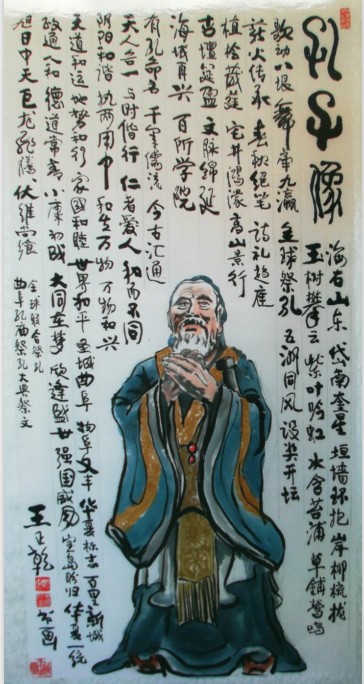 孔子像
海右山东 岱南奎生 垣墙环抱 岸柳梳拢
玉树攀云 紫叶吟虹 水含苔浦 草铺莺鸣
歌动八垠 舞雩九瀛 全球祭孔 五湖同风 设奠开坛
薪火传承 春秋绝笔 诗礼趋庭
植桧葳蕤 宅井鸿濛 高山景行
杏坛筵盈 文脉绵延
海域再兴 百所学院
有孔命名 千 儒流 今古汇通
天人合一 与时偕行 仁者爱人 和而不同
阴阳和谐 执两用中 和生万物 万物和兴
天道和运 地势和行 家国和睦 世界和平 圣城曲阜 物阜文丰 华夏标志 新城
政通人和 德道常青 小康初成 大同在梦 欣逢盛世 强国威风 宝岛盼归 华夏一统
旭日中天 巨龙飞腾 伏维尚飨
全球联合祭孔
曲阜孔庙祭孔大典祭文
王正乾 书画